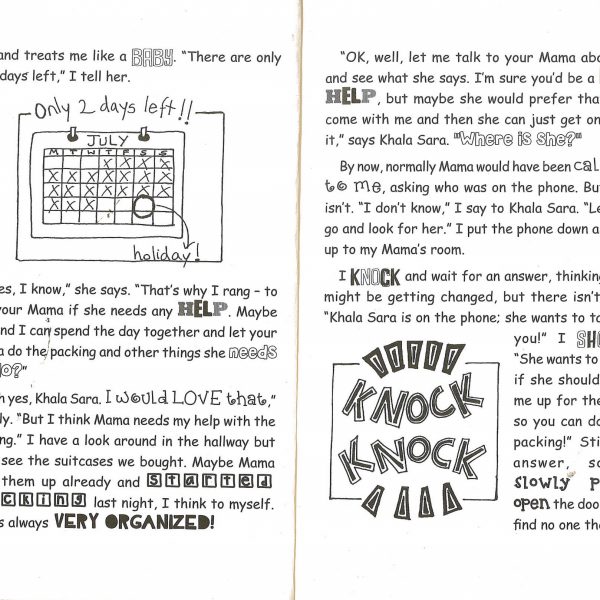 and treats me like a BABY. “There are only
days left,” I tell her.
Only 2 days left!!
JULY
M T W T F S S
holiday!
es, I know,” she says. “That’s why I rang – to
your Mama if she needs any HELP. Maybe
nd I can spend the day together and let your
a do the packing and other things she needs
o?”
h yes, Khala Sara. I would LOVE that,”
ly. “But I think Mama needs my help with the
ng.” I have a look around in the hallway but
see the suitcases we bought. Maybe Mama
them up already and started
cking last night, I think to myself.
s always VERY ORGANIZED!
“OK, well, let me talk to your Mama abo
and see what she says. I’m sure you’d be a
HELP, but maybe she would prefer tha
come with me and then she can just get on
it,” says Khala Sara. “Where is she?”
By now, normally Mama would have been cal
to me, asking who was on the phone. But
isn’t. “I don’t know,” I say to Khala Sara. “Le
go and look for her.” I put the phone down a
up to my Mama’s room.
I KNOCK and wait for an answer, thinking
might be getting changed, but there isn’t
“Khala Sara is on the phone; she wants to ta
you!” I SH
“She wants to
if she should
me up for the
so you can do
packing!” Sti
answer, so
slowly p
open the doo
find no one th
KNOCK
KNOCK